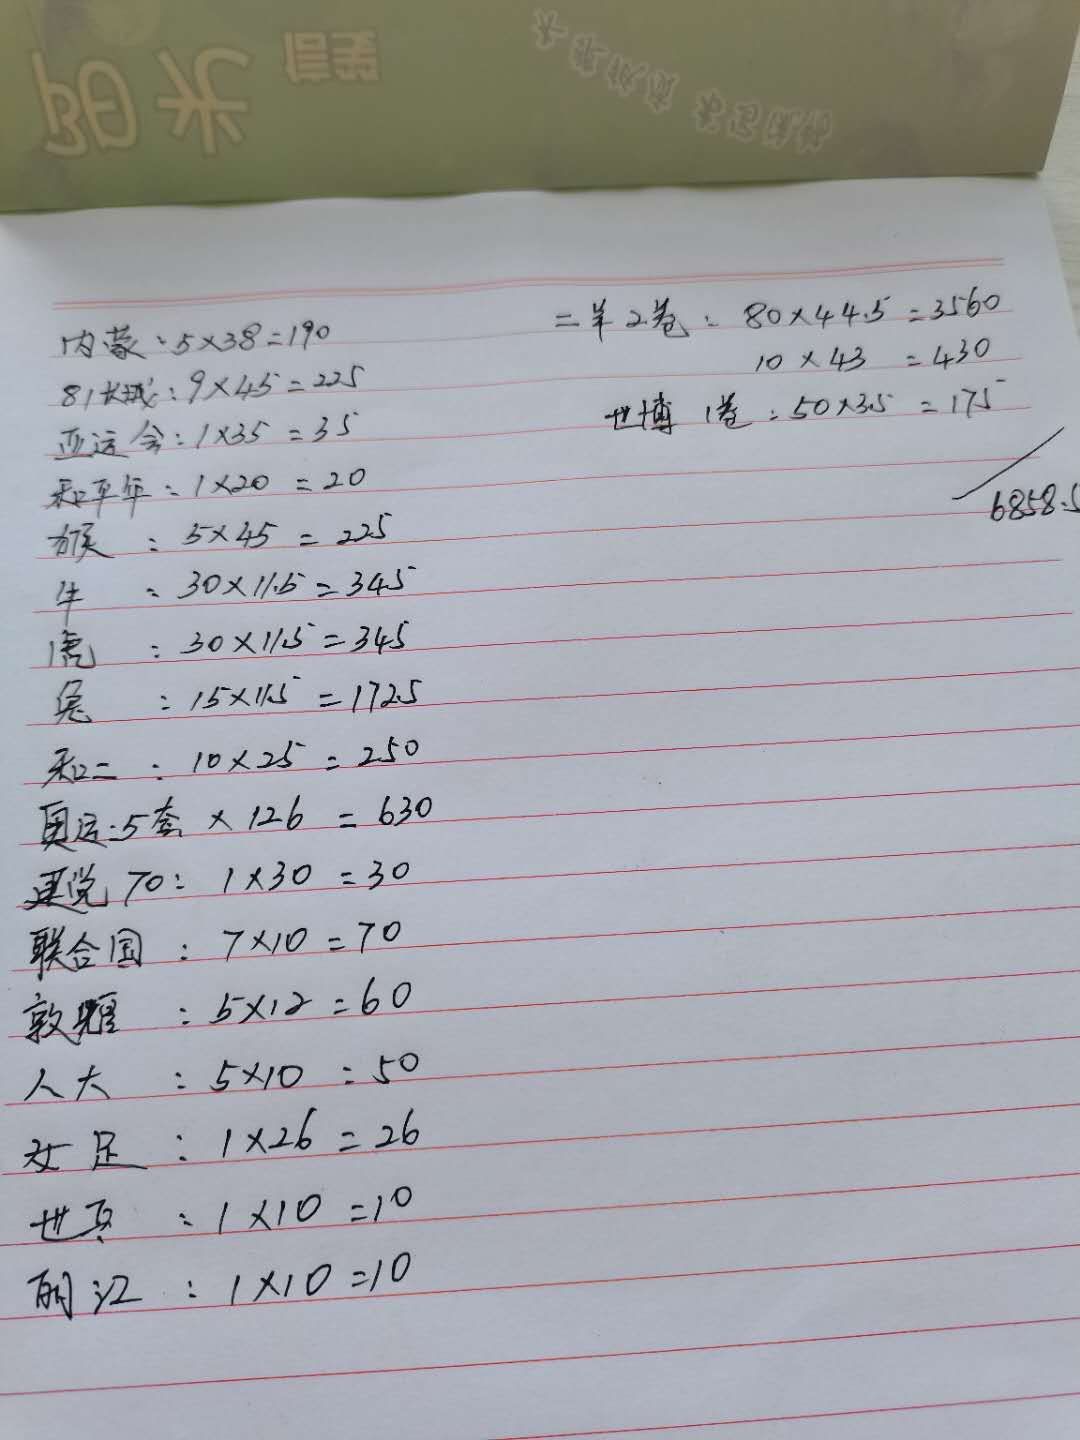 阳光
信笺
内蒙：5×38=190
81长城：9×45=225
亚运会：1×35=35
和平年：1×20=20
猴：5×45=225
牛：30×11.5=345
虎：30×11.5=345
兔：15×11.5=172.5
和二：10×25=250
奥运：5套×126=630
建党70：1×30=30
联合国：7×10=70
敦煌：5×12=60
人大：5×10=50
女足：1×26=26
世页：1×10=10
丽江：1×10=10
二羊2卷：80×44.5=3560
10×43=430
世博1卷：50×3.5=175
6858.5